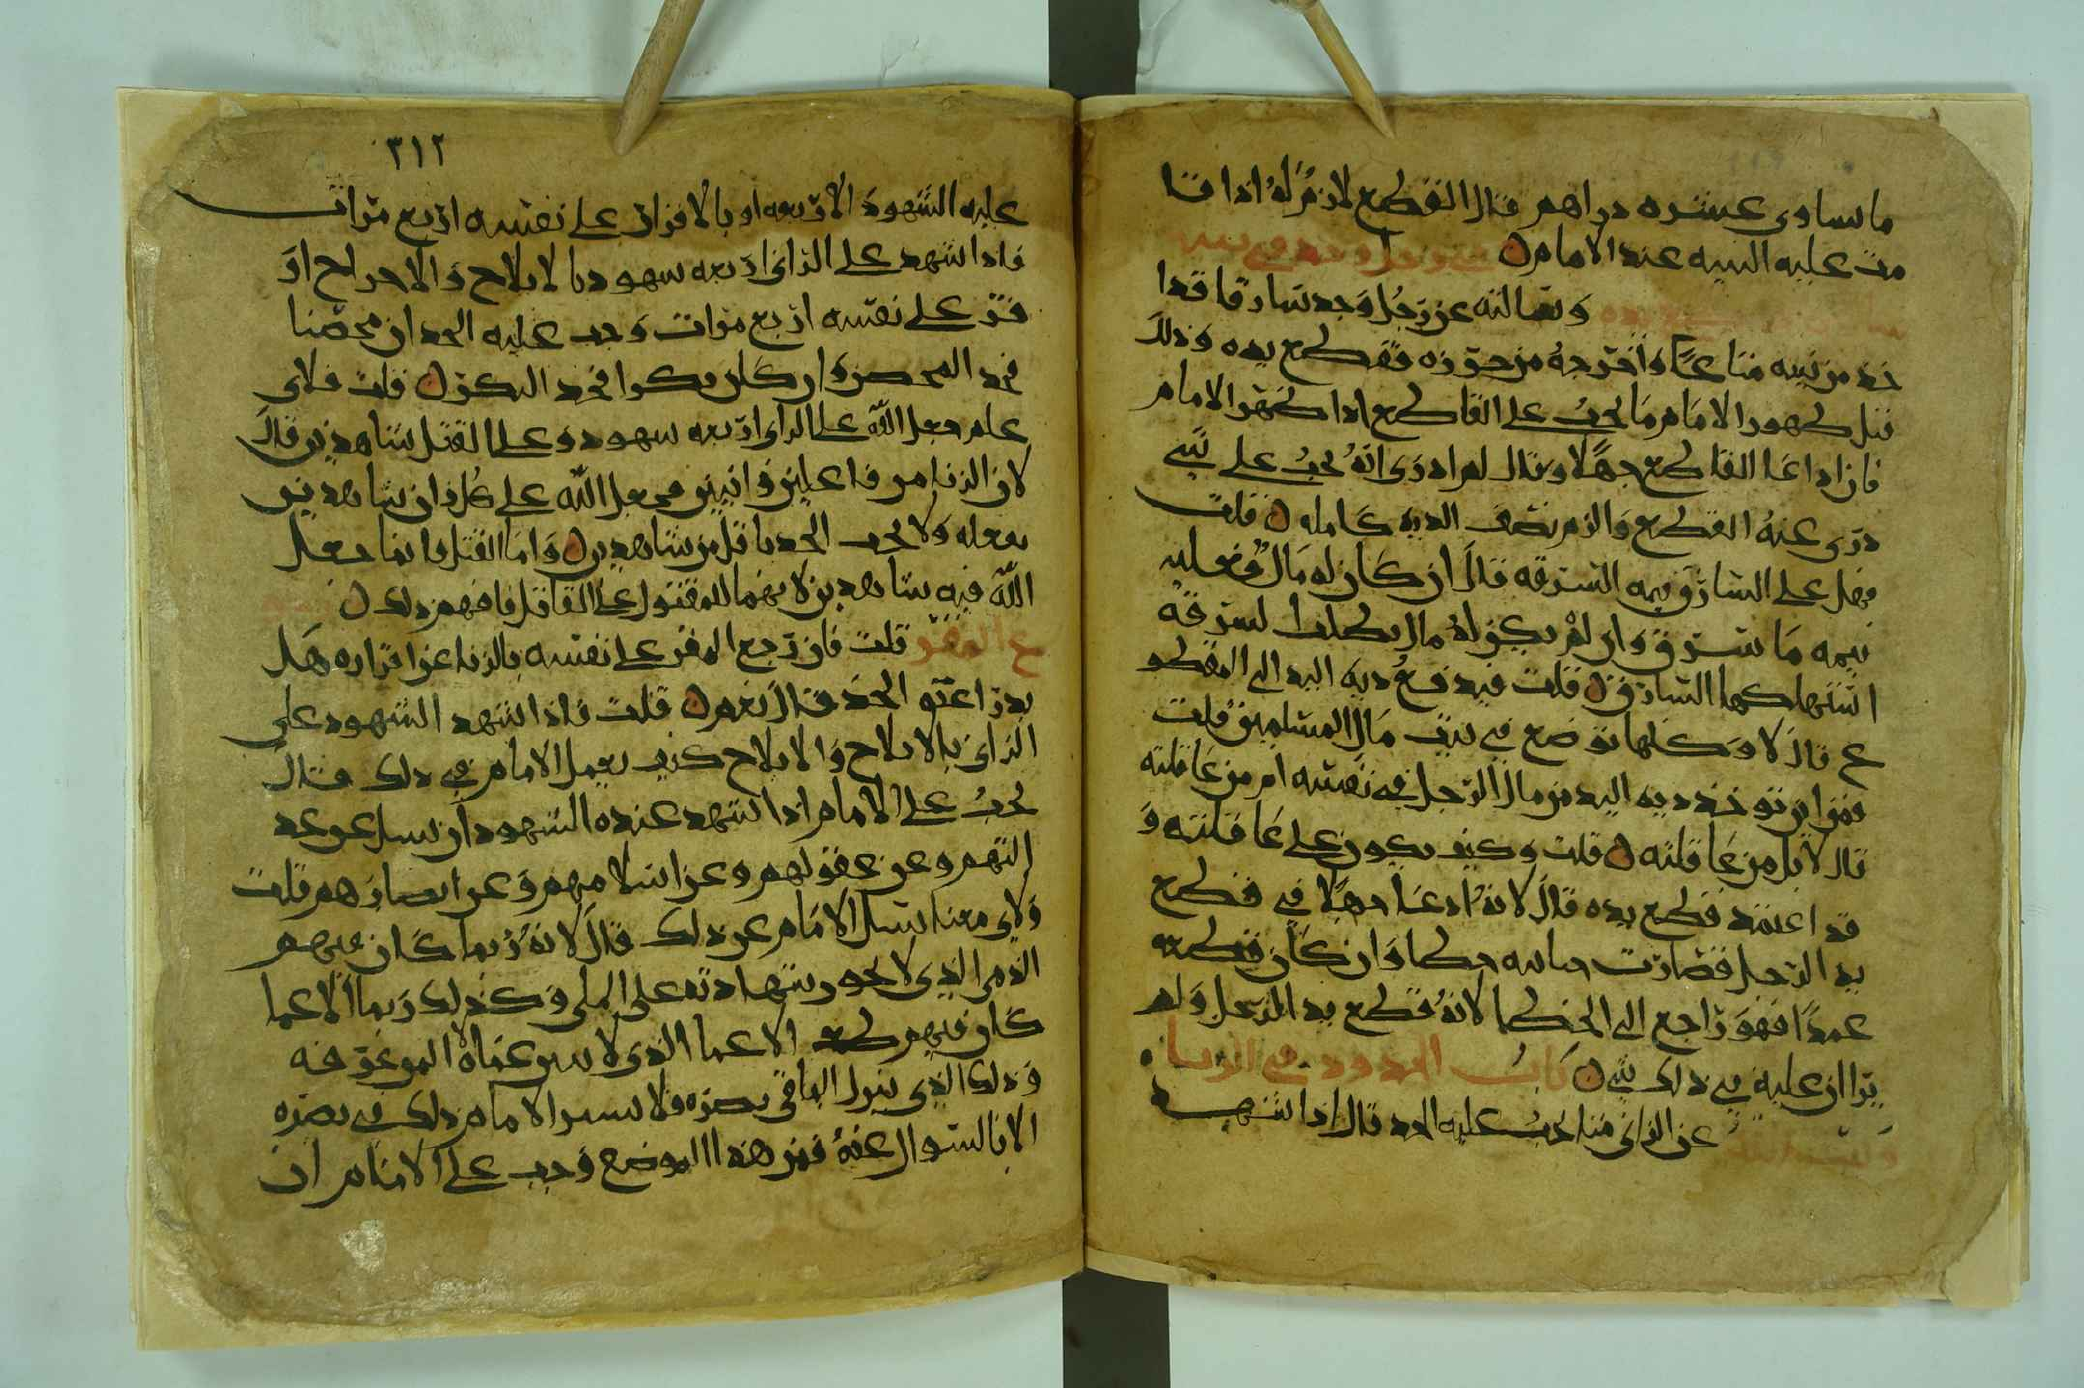 ما يساوي عشره دراهم قال القطع لازم له اذا قا
مت عليه البينه عند الامام في رجل وجد في بيته
وسالته عن رجل وجد سارقا قد ا
خذ من بيته متاعا واخرجه من حرزه فقطع يده وذلك
قبل ظهور الامام ما يجب على القاطع اذا ظهر الامام
فان ادعا القاطع جهلا وقال لم ادري انه يجب علي شي
دري عنه القطع والزم نصف الديه كامله قلت
فهل على السارق قيمه السرقه قال ان كان له مال فعليه
قيمه ما سرق وان لم يكن له مال بطلت السرقه
استهلكها السارق قلت فيدفع ديه اليد الى المقطو
ع قال لا ولكنها توضع في بيت مال المسلمين قلت
فمن اين توخذ ديه اليد من مال الرجل في نفسه ام من عاقلته
قال لا بل من عاقلته قلت وكيف يكون على عاقلته و
قد اعتمد قطع يده قال لانه ادعا جهلا في قطع
يد الرجل فصارت جنايته خطا وان كان قطعه
عمدا فهو راجع الى الخطا لانه قطع يد الرجل ولم
يرا ان عليه في ذلك شي كتاب الحدود في الزنا
وسالته عن الزاني متا يجب عليه الحد قال اذا شهد
٣١٢
عليه الشهود الاربعه او بالاقرار على نفسه اربع مرات
فاذا شهد على الزاني اربعه شهود بالايلاج والاخراج او
قر على نفسه اربع مرات وجب عليه الحد ان محصنا
فحد المحصن وان كان بكرا فحد البكر قلت فلاي
علم جعل الله على الزاني اربعه شهود وعلى القتل شاهدين قال
لان الزنا من فاعلين واثنين فجعل الله على كل زان شاهدين
بفعله ولا يجب الحد باقل من شاهدين واما القتل فانما جعل
الله فيه شاهدين لانهما للمقتول على القاتل فافهم ذلك
ع المقر قلت فان رجع المقر على نفسه بالزنا عن اقراره هل
يدراعنه الحد قال نعم قلت فاذا شهد الشهود على
الزاني بالايلاج كيف يعمل الامام في ذلك قال
يجب على الامام اذا شهد عنده الشهود ان يسل عن عد
التهم وعن عقولهم وعن اسلامهم وعن ابصارهم قلت
ولاي معنا يسل الامام عن ذلك قال لانه ربما كان فيهم
الذمي الذي لا يجوز شهادته على الملي وكذلك ربما الاعما
كان فيهم الاعما الذي لا يبين عماه
وذلك الذي ينزل الما في بصره فلا يتبين الامام ذلك في بصره
الا بالسوال عنه فمن هذا الموضع وجب على الامام ان